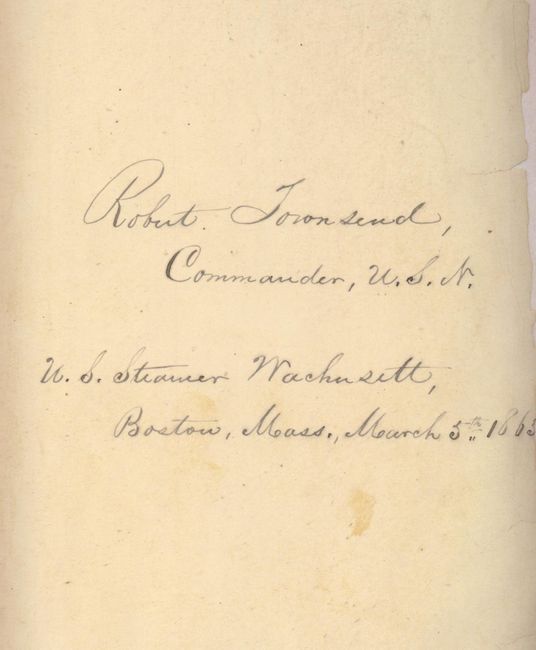 Robert Townsend,
Commander, U.S.N.
U.S. Steamer Wachusett,
Boston, Mass., March 5th 1865